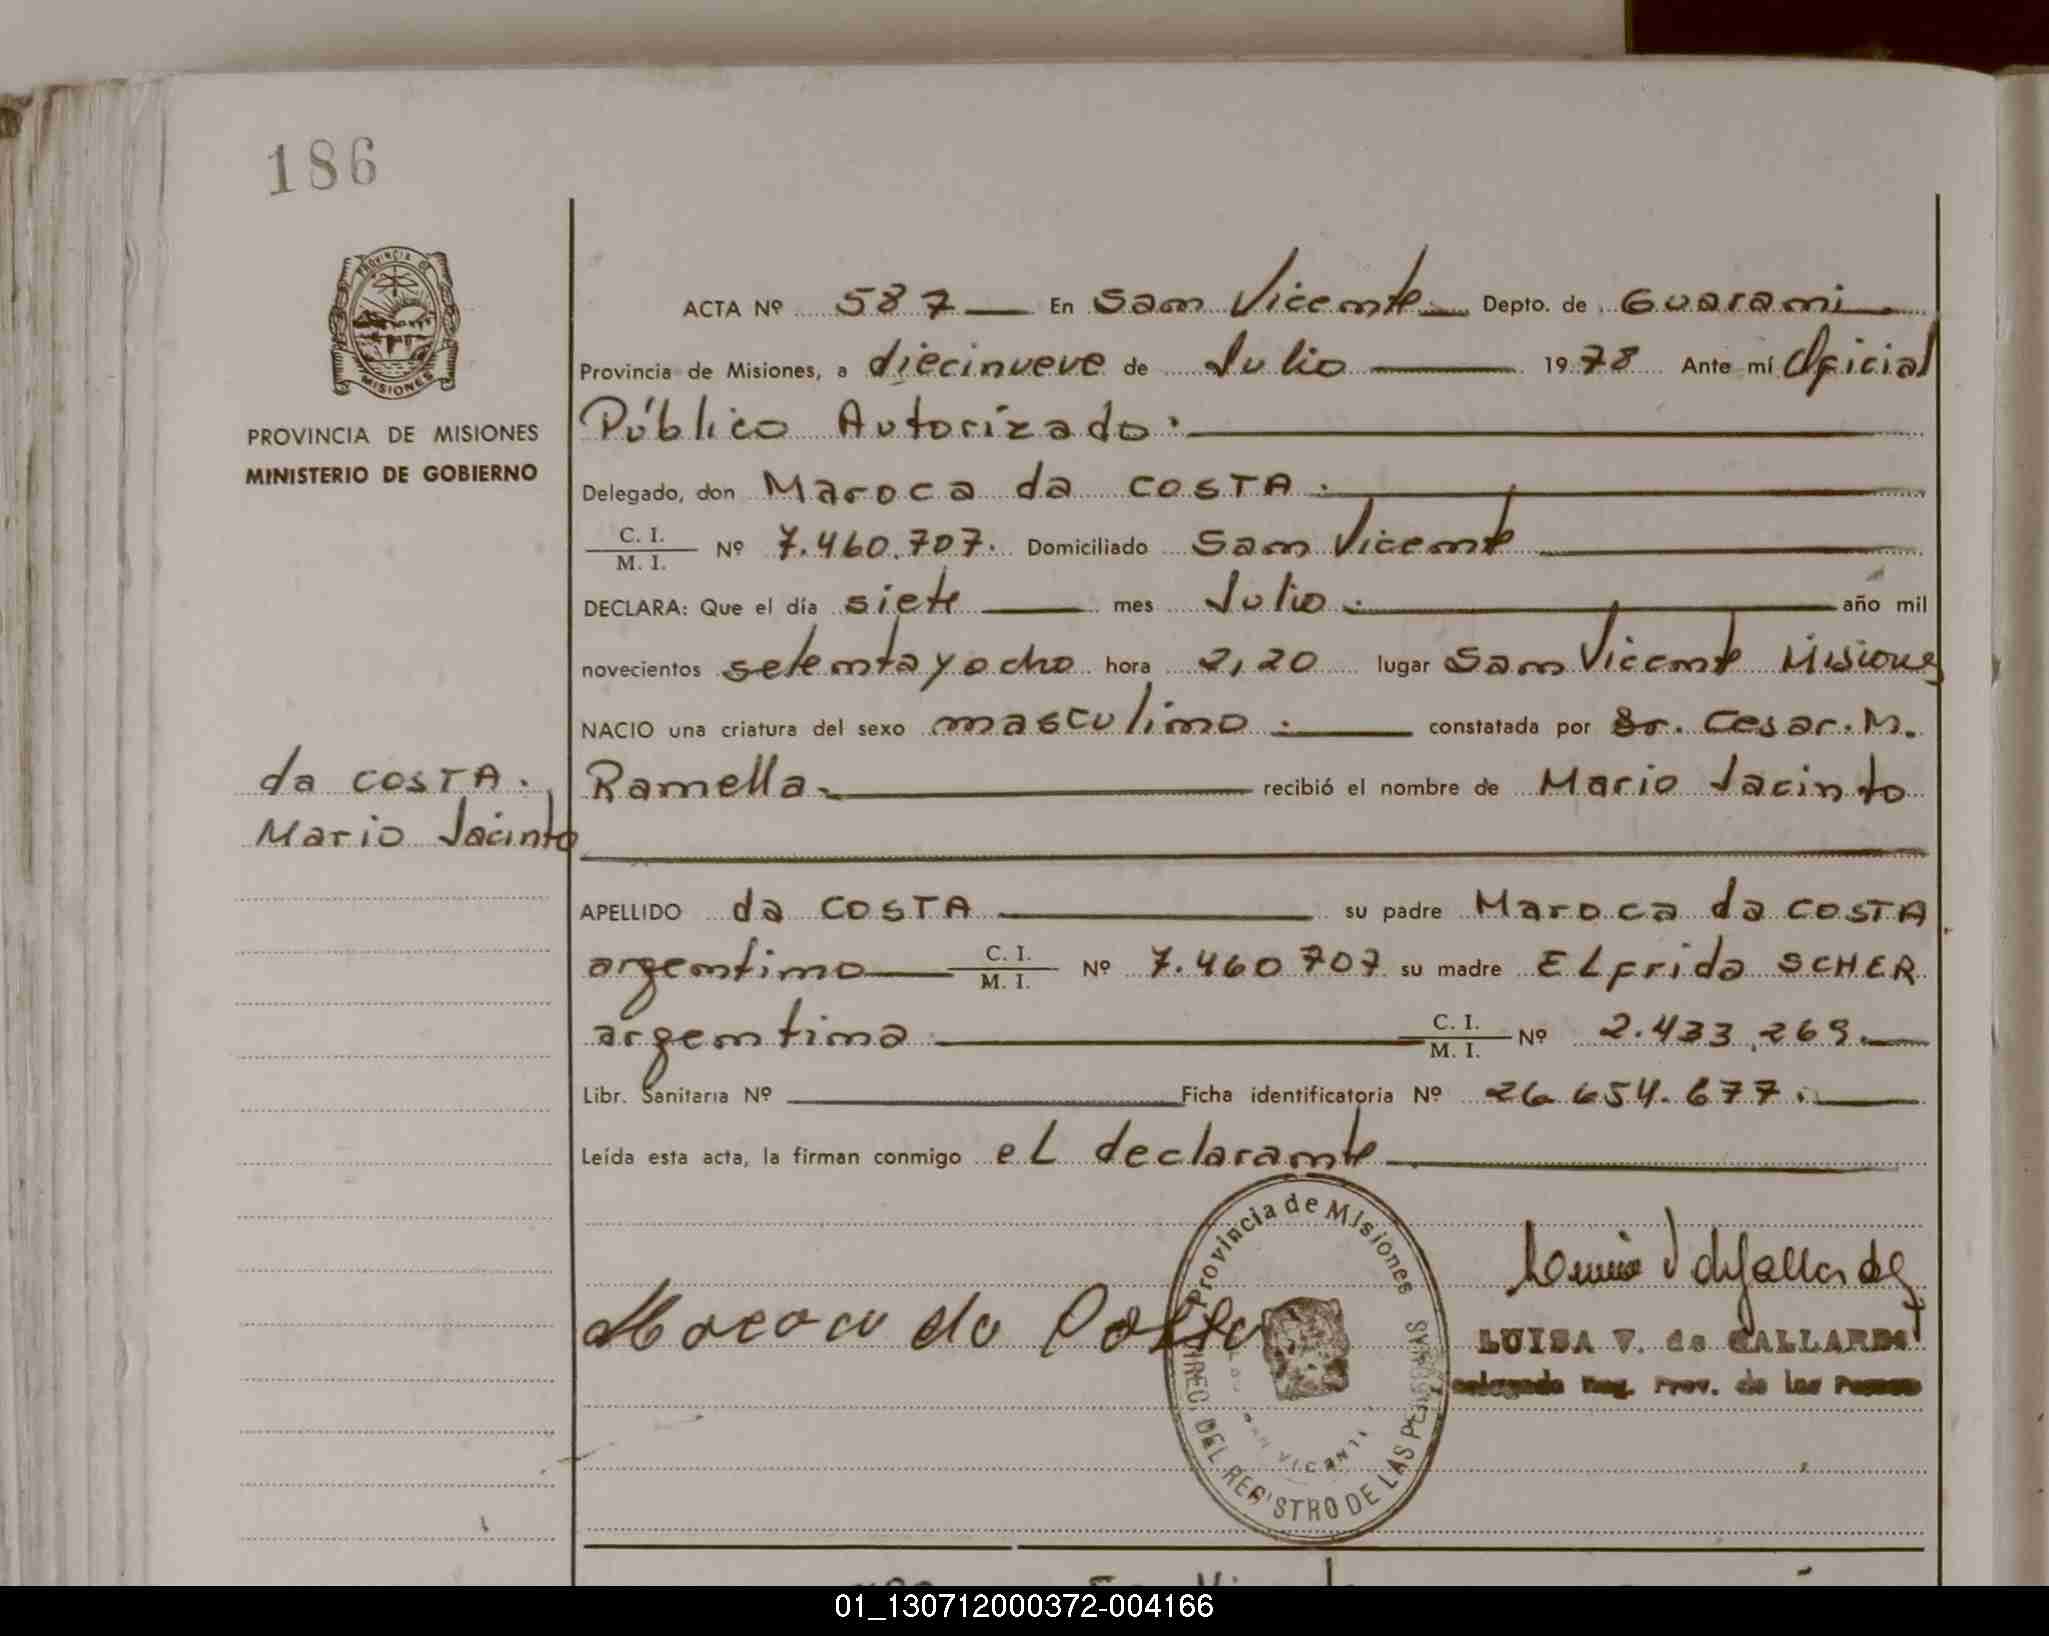 186
PROVINCIA DE MISIONES
PROVINCIA DE MISIONES
MINISTERIO DE GOBIERNO
ACTA Nº 587 En San Vicente Depto. de Guarani
Provincia de Misiones, a diecinueve de Julio 1978 Ante mí Oficial
Público Autorizado.
Delegado, don Maroca da COSTA.
C. I.
M. I. Nº 7.460.707. Domiciliado San Vicente
DECLARA: Que el día siete mes Julio. año mil
novecientos setenta y ocho hora 2,20 lugar San Vicente Misiones
NACIO una criatura del sexo masculino. constatada por Dr. Cesar. M.
Ramella. recibió el nombre de Mario Jacinto
da COSTA.
Mario Jacinto
APELLIDO da COSTA su padre Maroca da COSTA
argentino C. I.
M. I. Nº 7.460707 su madre ELfrida SCHER
argentina C. I.
M. I. Nº 2.433.269.
Libr. Sanitaria Nº Ficha identificatoria Nº 26.654.677.
Leída esta acta, la firman conmigo eL declarante
Maroca da Costa
Provincia de Misiones
DEL REGISTRO DE LAS PERSONAS
SAN VICENTE
LUISA V. de GALLARDO
Delegada Reg. Prov. de las Personas
01_130712000372-004166